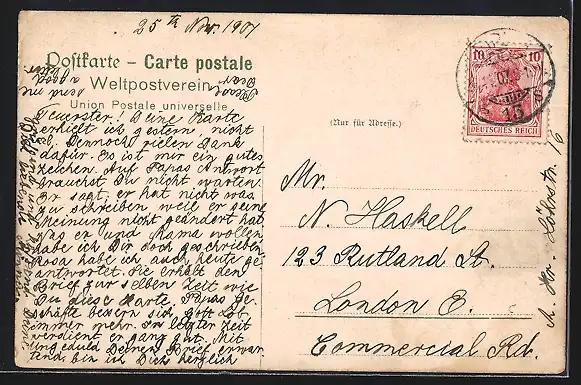 25th Nov. 1907
Postkarte – Carte postale
Weltpostverein
Union Postale universelle
Please send me a good
Teuerster! Deine Karte
erhielt ich gestern, nicht
Dennoch vielen Dank
dafür. Es ist mir ein gutes
Zeichen. Auf Papas Antwort
brauchst Du nicht warten.
Er sagt, er hat nicht was
zu schreiben weil er seine
Meinung nicht geändert hat.
er und Mama wollen
habe ich Dir doch geschrieben.
Rosa habe ich auch heute ge
antwortet. Sie erhält den
Brief zur selben Zeit wie
Du diese Karte. Papas Ge
schäfte bessern sich Gott Lob
immer mehr. In letzter Zeit
verdient er ganz gut. Mit
Ungeduld Deinen Brief erwar
tend, bin ich Dich herzlich
(Nur für Adresse.)
10 10
DEUTSCHES REICH
Mr.
N. Haskell
123 Rutland St.
London E.
Commercial Rd.